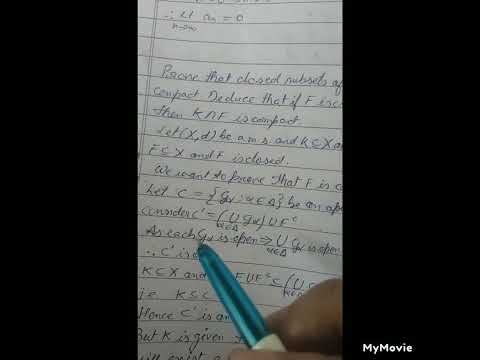 ∴ lt aₙ = 0
n→∞
Prove that closed subsets of
compact Deduce that if F is co
then K∩F is compact.
Let (X,d) be a m s and K⊆X a
F⊆X and F is closed.
We want to prove that F is c
Let C = {Gα : α∈Δ} be an op
consider C' = (∪ Gα) ∪ Fᶜ
α∈Δ
As each Gα is open ⇒ ∪ Gα is open
α∈Δ
∴ C' is
K⊆X and F∪Fᶜ ⊆ (∪
i.e. K⊆C
Hence C' is an
But K is given
will exist a
MyMovie